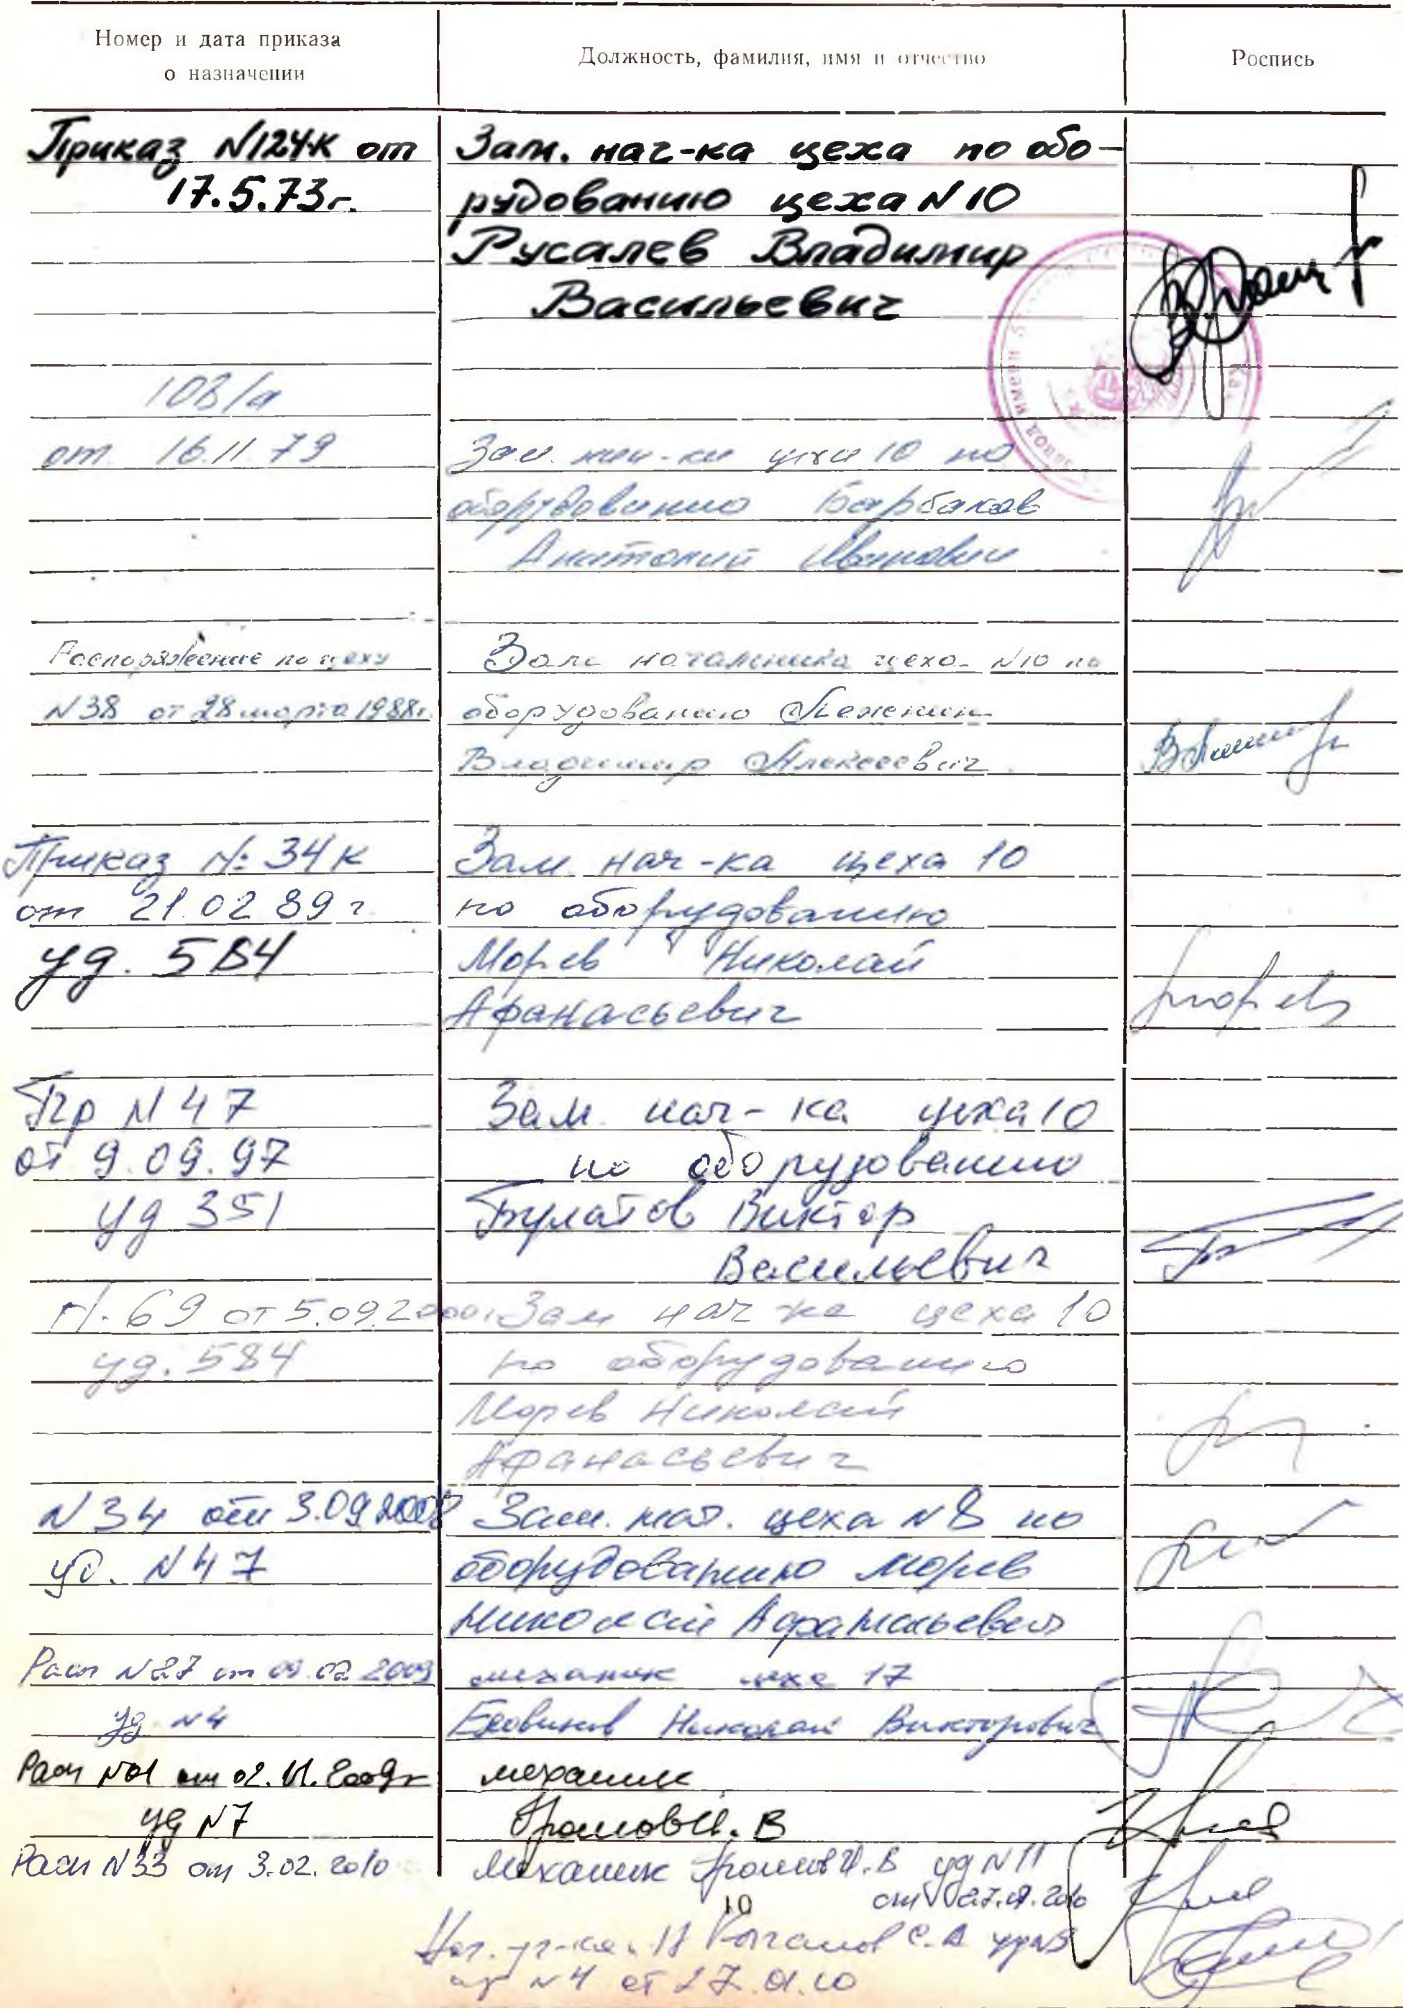 Номер и дата приказа
о назначении
Должность, фамилия, имя и отчество
Роспись
Приказ N124К от
17.5.73г.
Зам. нач-ка цеха по обо-
рудованию цеха N10
Русалев Владимир
Васильевич
завод имени
108/а
от 16.11.79
Зам. нач-ка цеха 10 по
оборудованию
Анатолий Иванович
Распоряжение по цеху
N38 от 28 марта 1988г.
Зам начальника цеха N10 по
оборудованию
Владимир Алексеевич
Приказ №: 34К
от 21.02 89 г
уд. 584
Зам. нач-ка цеха 10
по оборудованию
Морев Николай
Афанасьевич
Морев
Пр N47
от 9.09.97
уд 351
Зам. нач-ка цеха 10
по оборудованию
Булатов Виктор
Васильевич
N. 69 от 5.09.2000г.
уд. 584
Зам нач-ка цеха 10
по оборудованию
Морев Николай
Афанасьевич
N34 от 3.09.2008
уд. N47
Зам. нач. цеха N8 по
оборудованию Морев
Николай Афанасьевич
Расп N27 от 09.02 2009
уд N4
механик цеха 17
Николай Викторович
Расп N01 от 02.11.2009г
уд N7
механик
Громов И.В
Расп N33 от 3.02.2010
механик Громов И.В уд N11
от 27.01.2010
10
С.А уд N5
N4 от 27.01.10